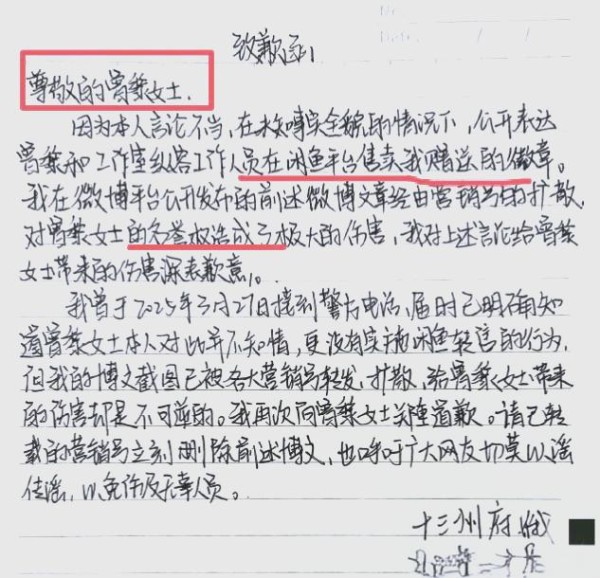 No.
Date. / /
致歉函
尊敬的曾黎女士.
因为本人言论不当,在未知事实全貌的情况下,公开表达
曾黎和工作室纵容工作人员在闲鱼平台售卖我赠送的徽章。
我在微博平台公开发布的前述微博文章经由营销号的扩散,
对曾黎女士的名誉权造成了极大的伤害,我对上述言论给曾黎
女士带来的伤害深表歉意。
我曾于2025年3月27日接到警方电话,届时已明确知
道曾黎女士本人对此并不知情,更没有实施闲鱼转售的行为,
但我的博文截图已被各大营销号转发,扩散,给曾黎女士带来
的伤害却是不可逆的。我再次向曾黎女士郑重道歉。请已转
载的营销号立刻删除前述博文,也呼吁广大网友切莫以谣
传谣,以免伤及无辜人员。
十三州府